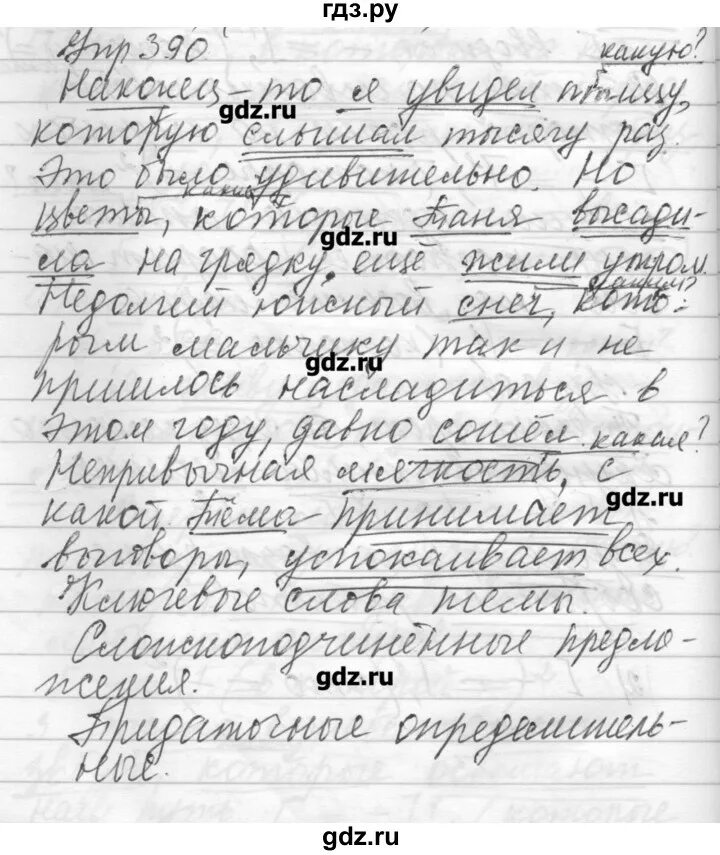 гдз.ру
Упр 390. какую?
Наконец-то я увидел птицу,
gdz.ru
которую слышал тысячу раз.
Это было удивительно. Но
какие?
цветы, которые Таня высади-
gdz.ru
ла на грядку, ещё жили утром.
каким?
Недолгий южный снег, кото-
рым мальчику так и не
gdz.ru
пришлось насладиться в
этом году, давно сошёл. какая?
Непривычная мягкость, с
gdz.ru
какой Тёма принимает
выговоры, успокаивает всех.
Ключевые слова темы.
Сложноподчинённые предло-
жения.
gdz.ru
Придаточные определитель-
ные.
gdz.ru